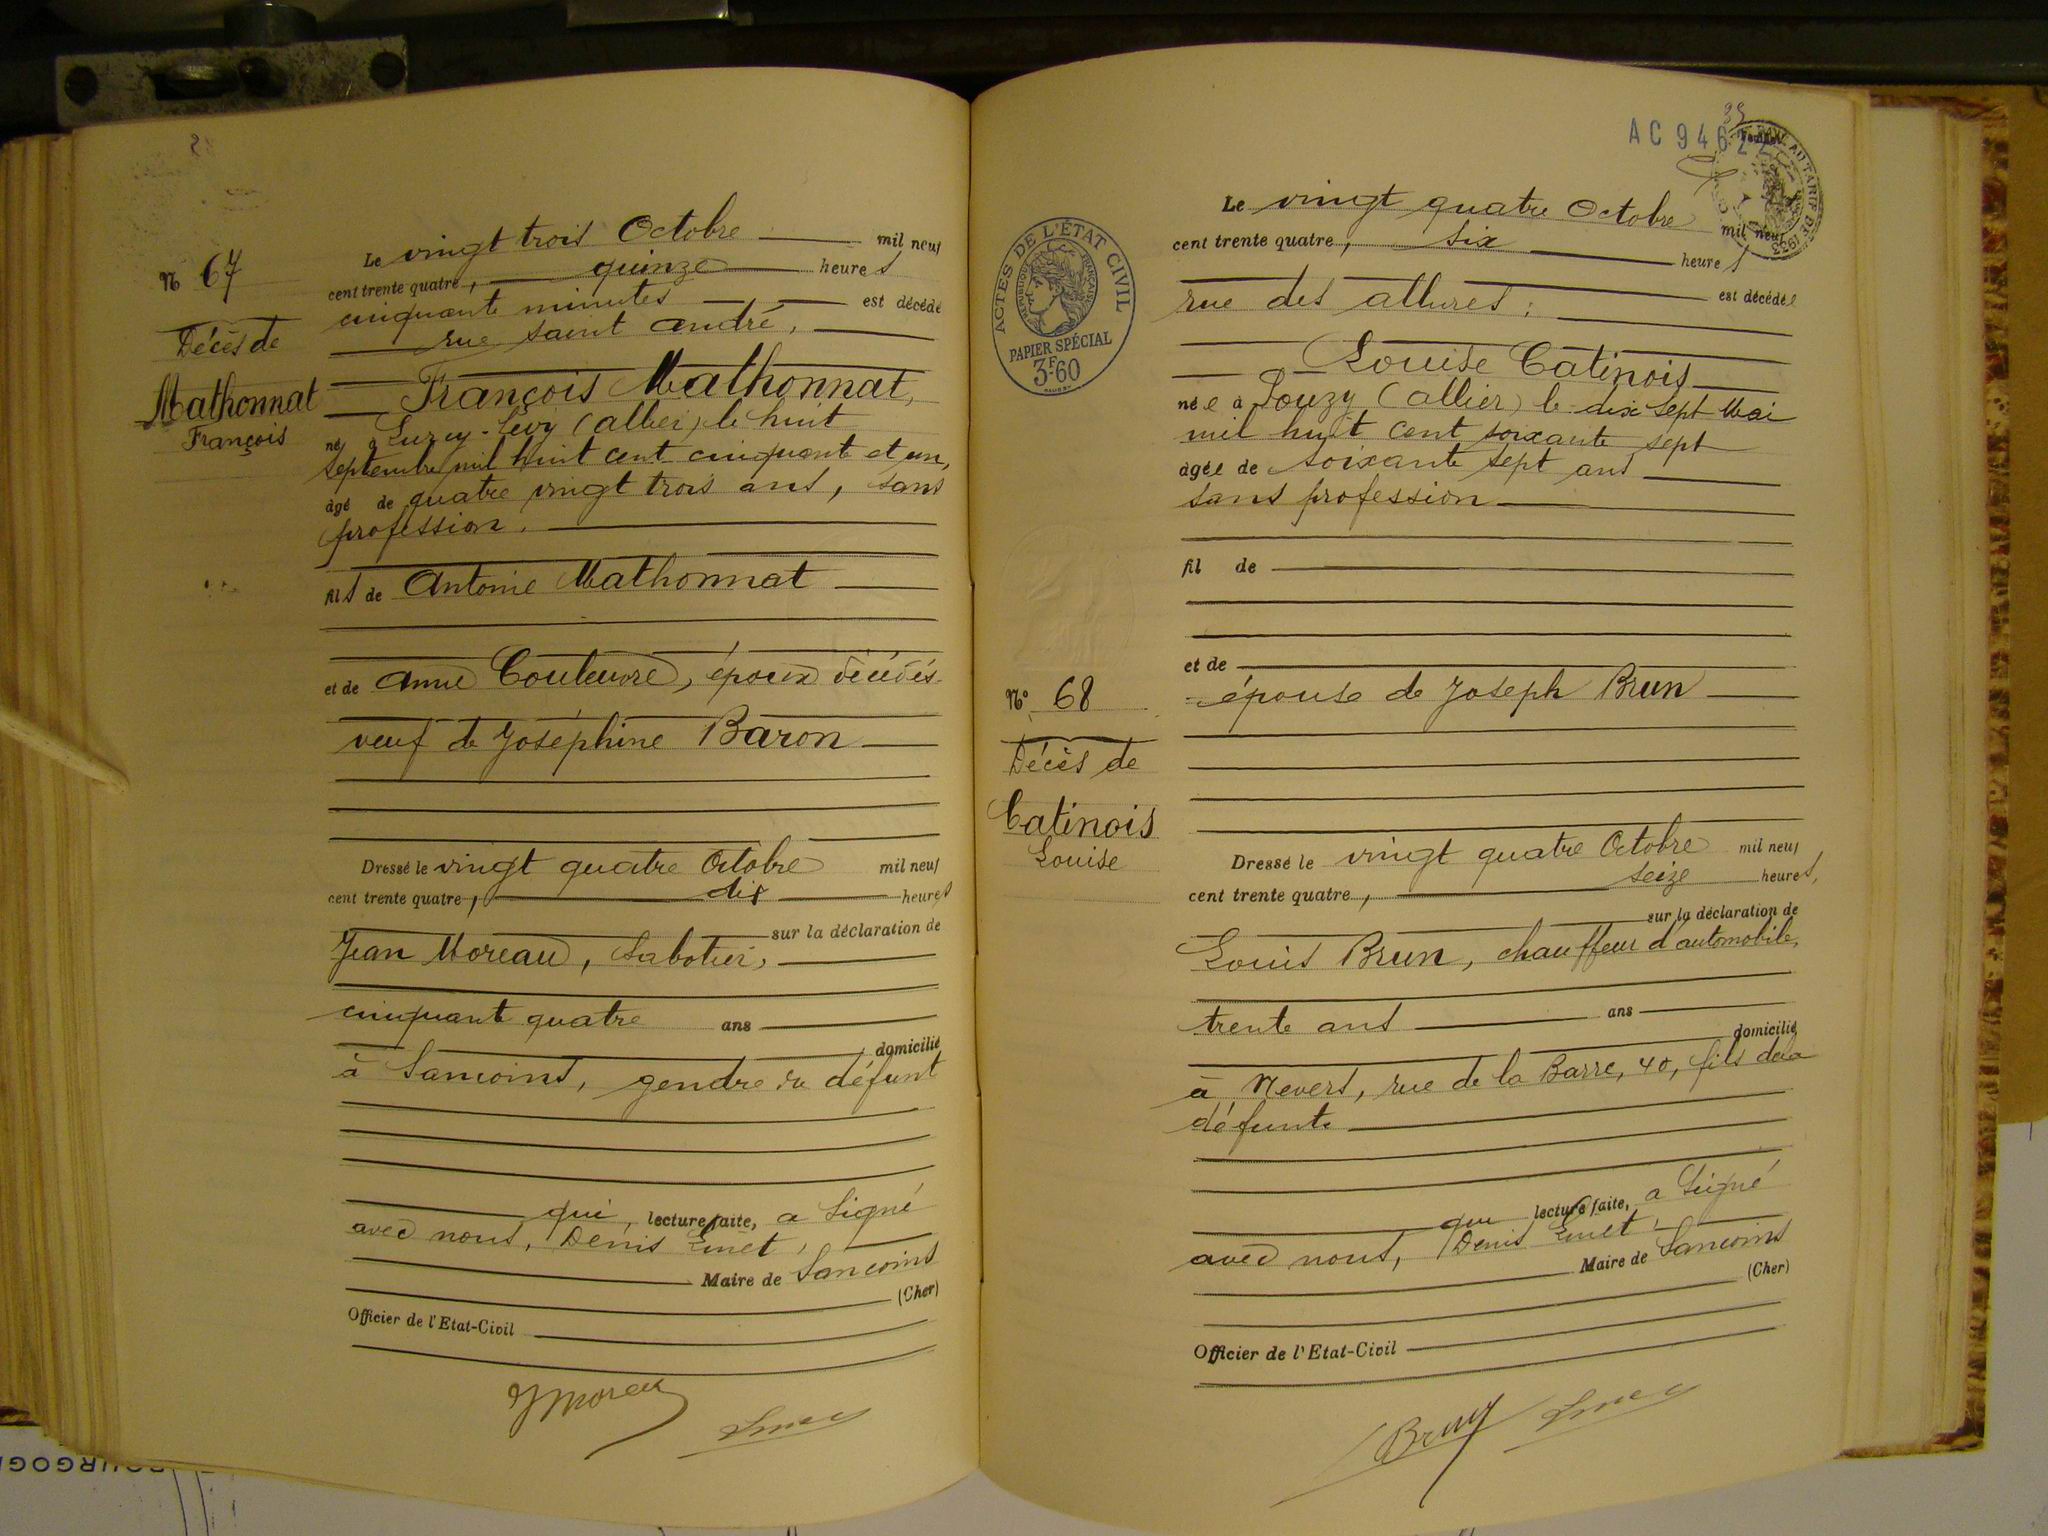 N 67
Décès de
Mathonnat
François
Le vingt trois Octobre mil neuf
cent trente quatre, quinze heures
cinquante minutes est décédé
rue saint André,
François Mathonnat,
né à Lurcy-Lévy (allier) le huit
septembre mil huit cent cinquante et un,
âgé de quatre vingt trois ans, sans
profession.
fils de Antoine Mathonnat
et de Anne Couleuvre, époux décédés.
veuf de Joséphine Baron
Dressé le vingt quatre Octobre mil neuf
cent trente quatre, dix heures
sur la déclaration de
Jean Moreau, Sabotier,
cinquante quatre ans
domicilié
à Sancoins, gendre du défunt
qui, lecture faite, a signé
avec nous, Denis Emet,
Maire de Sancoins
(Cher)
Officier de l'Etat-Civil
JMoreau
AC 946
Feuillet
AU TARIF DE 1933
ACTES DE L'ÉTAT CIVIL
RÉPUBLIQUE FRANÇAISE
PAPIER SPÉCIAL
3F60
Le vingt quatre Octobre mil neuf
cent trente quatre, six heures
rue des allures; est décédée
Louise Catinois
née à Pouzy (allier) le dix sept Mai
mil huit cent soixante sept
âgée de soixante sept ans
sans profession
fil de
et de
épouse de Joseph Brun
N° 68
Décès de
Catinois
Louise
Dressé le vingt quatre Octobre mil neuf
cent trente quatre, seize heures,
sur la déclaration de
Louis Brun, chauffeur d'automobile,
trente ans ans
domicilié
à Nevers, rue de la Barre, 40, fils de la
défunte
qui lecture faite, a signé
avec nous, Denis Emet,
Maire de Sancoins
(Cher)
Officier de l'Etat-Civil
Brun